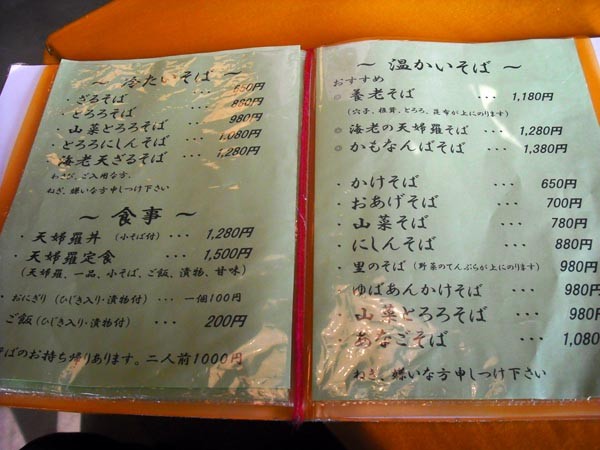 ~ 冷たいそば ~
・ざるそば ・・・ 650円
・とろろそば 880円
・山菜とろろそば 980円
・とろろにしんそば 1,080円
海老天ざるそば ・・・ 1,280円
わさび、ご入用な方、
ねぎ、嫌いな方申しつけ下さい
~ 食事 ~
・天婦羅丼 (小そば付) ・・・ 1,280円
・天婦羅定食 ・・・ 1,500円
(天婦羅、一品、小そば、ご飯、漬物、甘味)
・おにぎり(ひじき入り・漬物付) ・・・ 一個100円
ご飯(ひじき入り・漬物付) ・・・ 200円
そばのお持ち帰りあります。二人前1000円
~ 温かいそば ~
おすすめ
◎ 養老そば ・・・ 1,180円
(穴子、椎茸、とろろ、昆布が上にのります)
◎ 海老の天婦羅そば ・・・ 1,280円
◎ かもなんばそば ・・・ 1,380円
・かけそば ・・・ 650円
・おあげそば ・・・ 700円
・山菜そば ・・・ 780円
・にしんそば ・・・ 880円
・里のそば(野菜のてんぷらが上にのります) 980円
・ゆばあんかけそば ・・・ 980円
・山菜とろろそば ・・・ 980円
・あなごそば ・・・ 1,080
ねぎ、嫌いな方申しつけ下さい